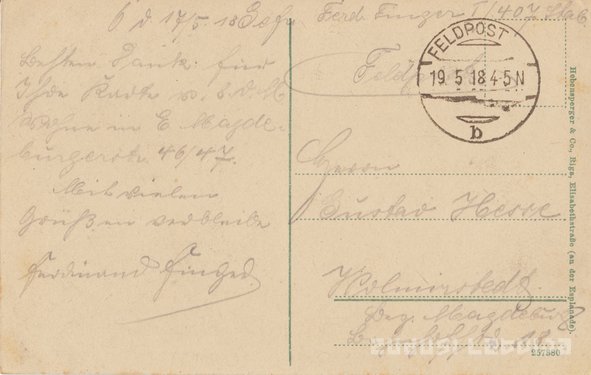 d 17/5 18 Gefr. Ferd. Finger I/407 Stab
Besten Dank für
Ihre Karte v. 6. d M
Wohne in E. Magde-
burgerstr. 46/47.
Mit vielen
Grüßen verbleibe
Ferdinand Finger
FELDPOST
19 5 18 4-5N
b
Herrn
Gustav Hesse
Wolmirstedt
Bez. Magdeburg
Hohensperger & Co., Riga, Elisabethstraße (an der Esplanade).
257880